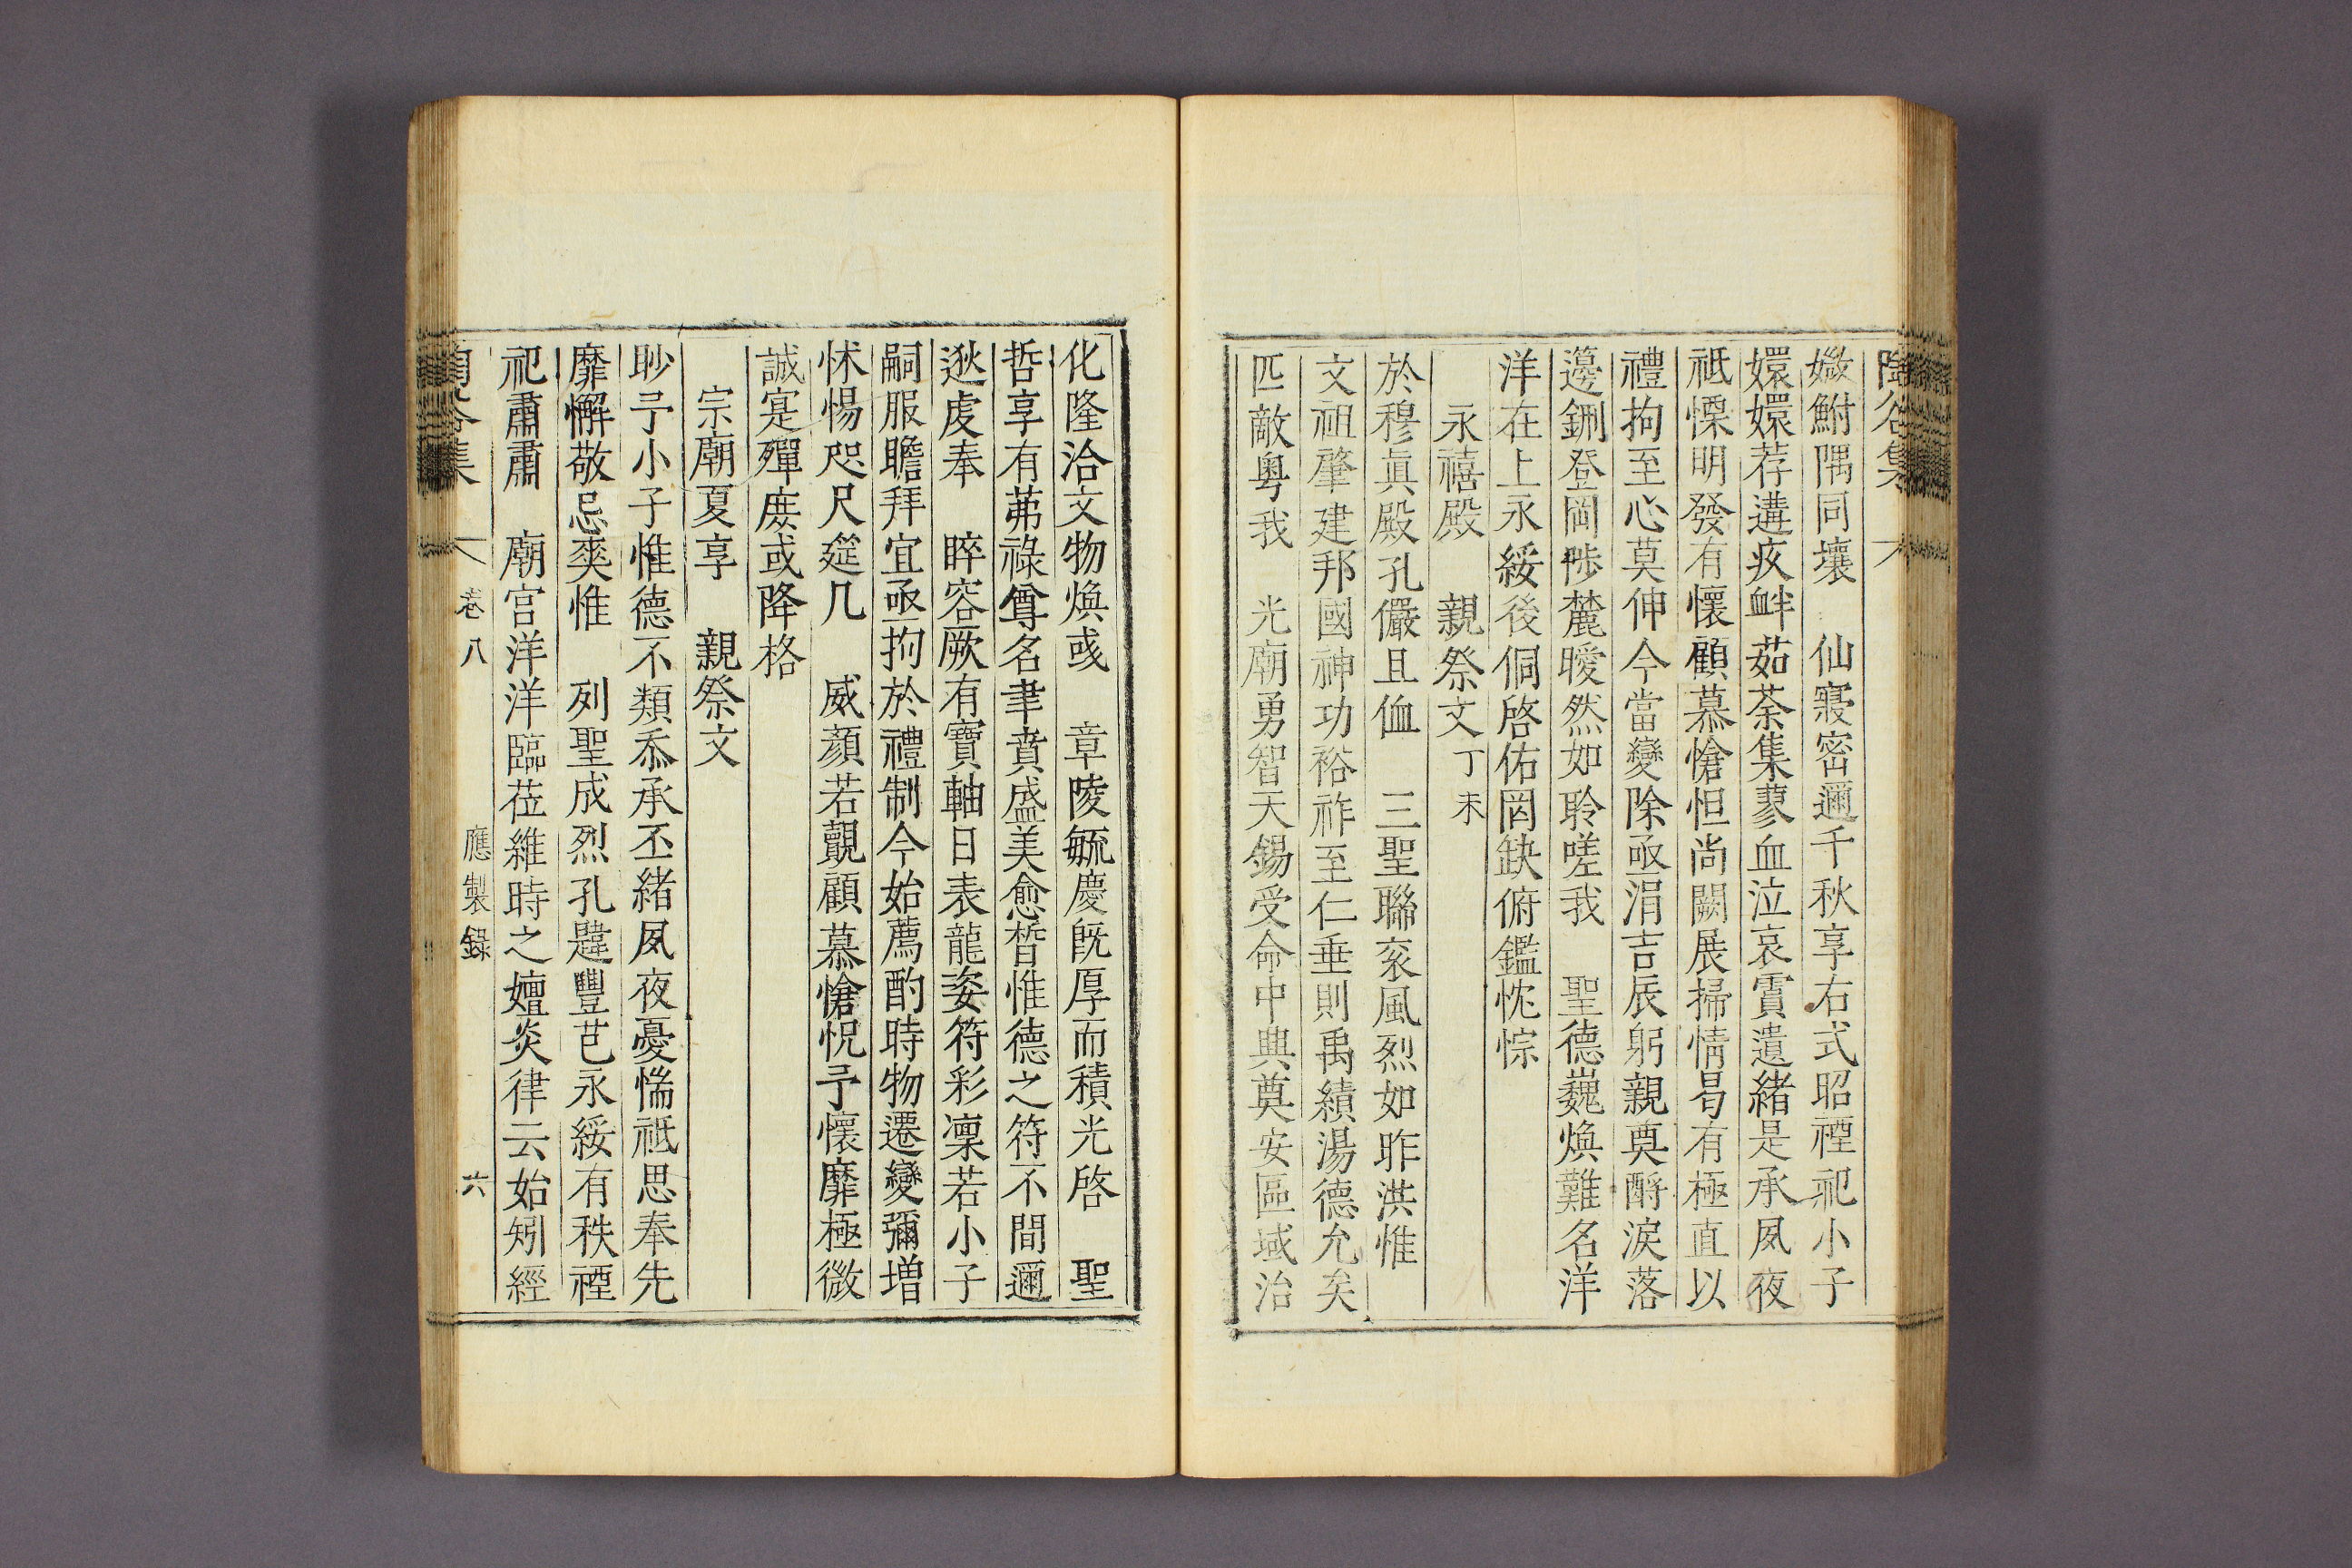 陶谷集
媺鮒隅同壤 仙寢密邇千秋享右式昭禋祀小子
嬛嬛荐遘疚衅茹荼集蓼血泣哀霣遺緒是承夙夜
祗慄明發有懷顧慕愴怛尚闕展掃情曷有極直以
禮拘至心莫伸今當變除亟涓吉辰躬親奠酹淚落
籩鉶登岡陟麓曖然如聆嗟我 聖德巍煥難名洋
洋在上永綏後侗啓佑罔缺俯鑑忱悰
永禧殿 親祭文 丁未
於穆眞殿孔儼且侐 三聖聯袞風烈如昨洪惟
文祖肇建邦國神功裕祚至仁垂則禹績湯德允矣
匹敵粤我 光廟勇智天錫受命中興奠安區域治
化隆洽文物煥彧 章陵毓慶旣厚而積光啓 聖
哲享有茀祿尊名聿賁盛美愈晳惟德之符不間邇
逖虔奉 睟容厥有寶軸日表龍姿符彩凜若小子
嗣服瞻拜宜亟拘於禮制今始薦酌時物遷變彌增
怵惕咫尺筵几 威顏若覿顧慕愴怳予懷靡極微
誠寔殫庶或降格
宗廟夏享 親祭文
眇予小子惟德不類忝承丕緖夙夜憂惴祗思奉先
靡懈敬忌奕惟 列聖成烈孔韙豐芑永綏有秩禋
祀肅肅 廟宮洋洋臨莅維時之嬗炎律云始矧經
陶谷集 卷八 應製錄 六